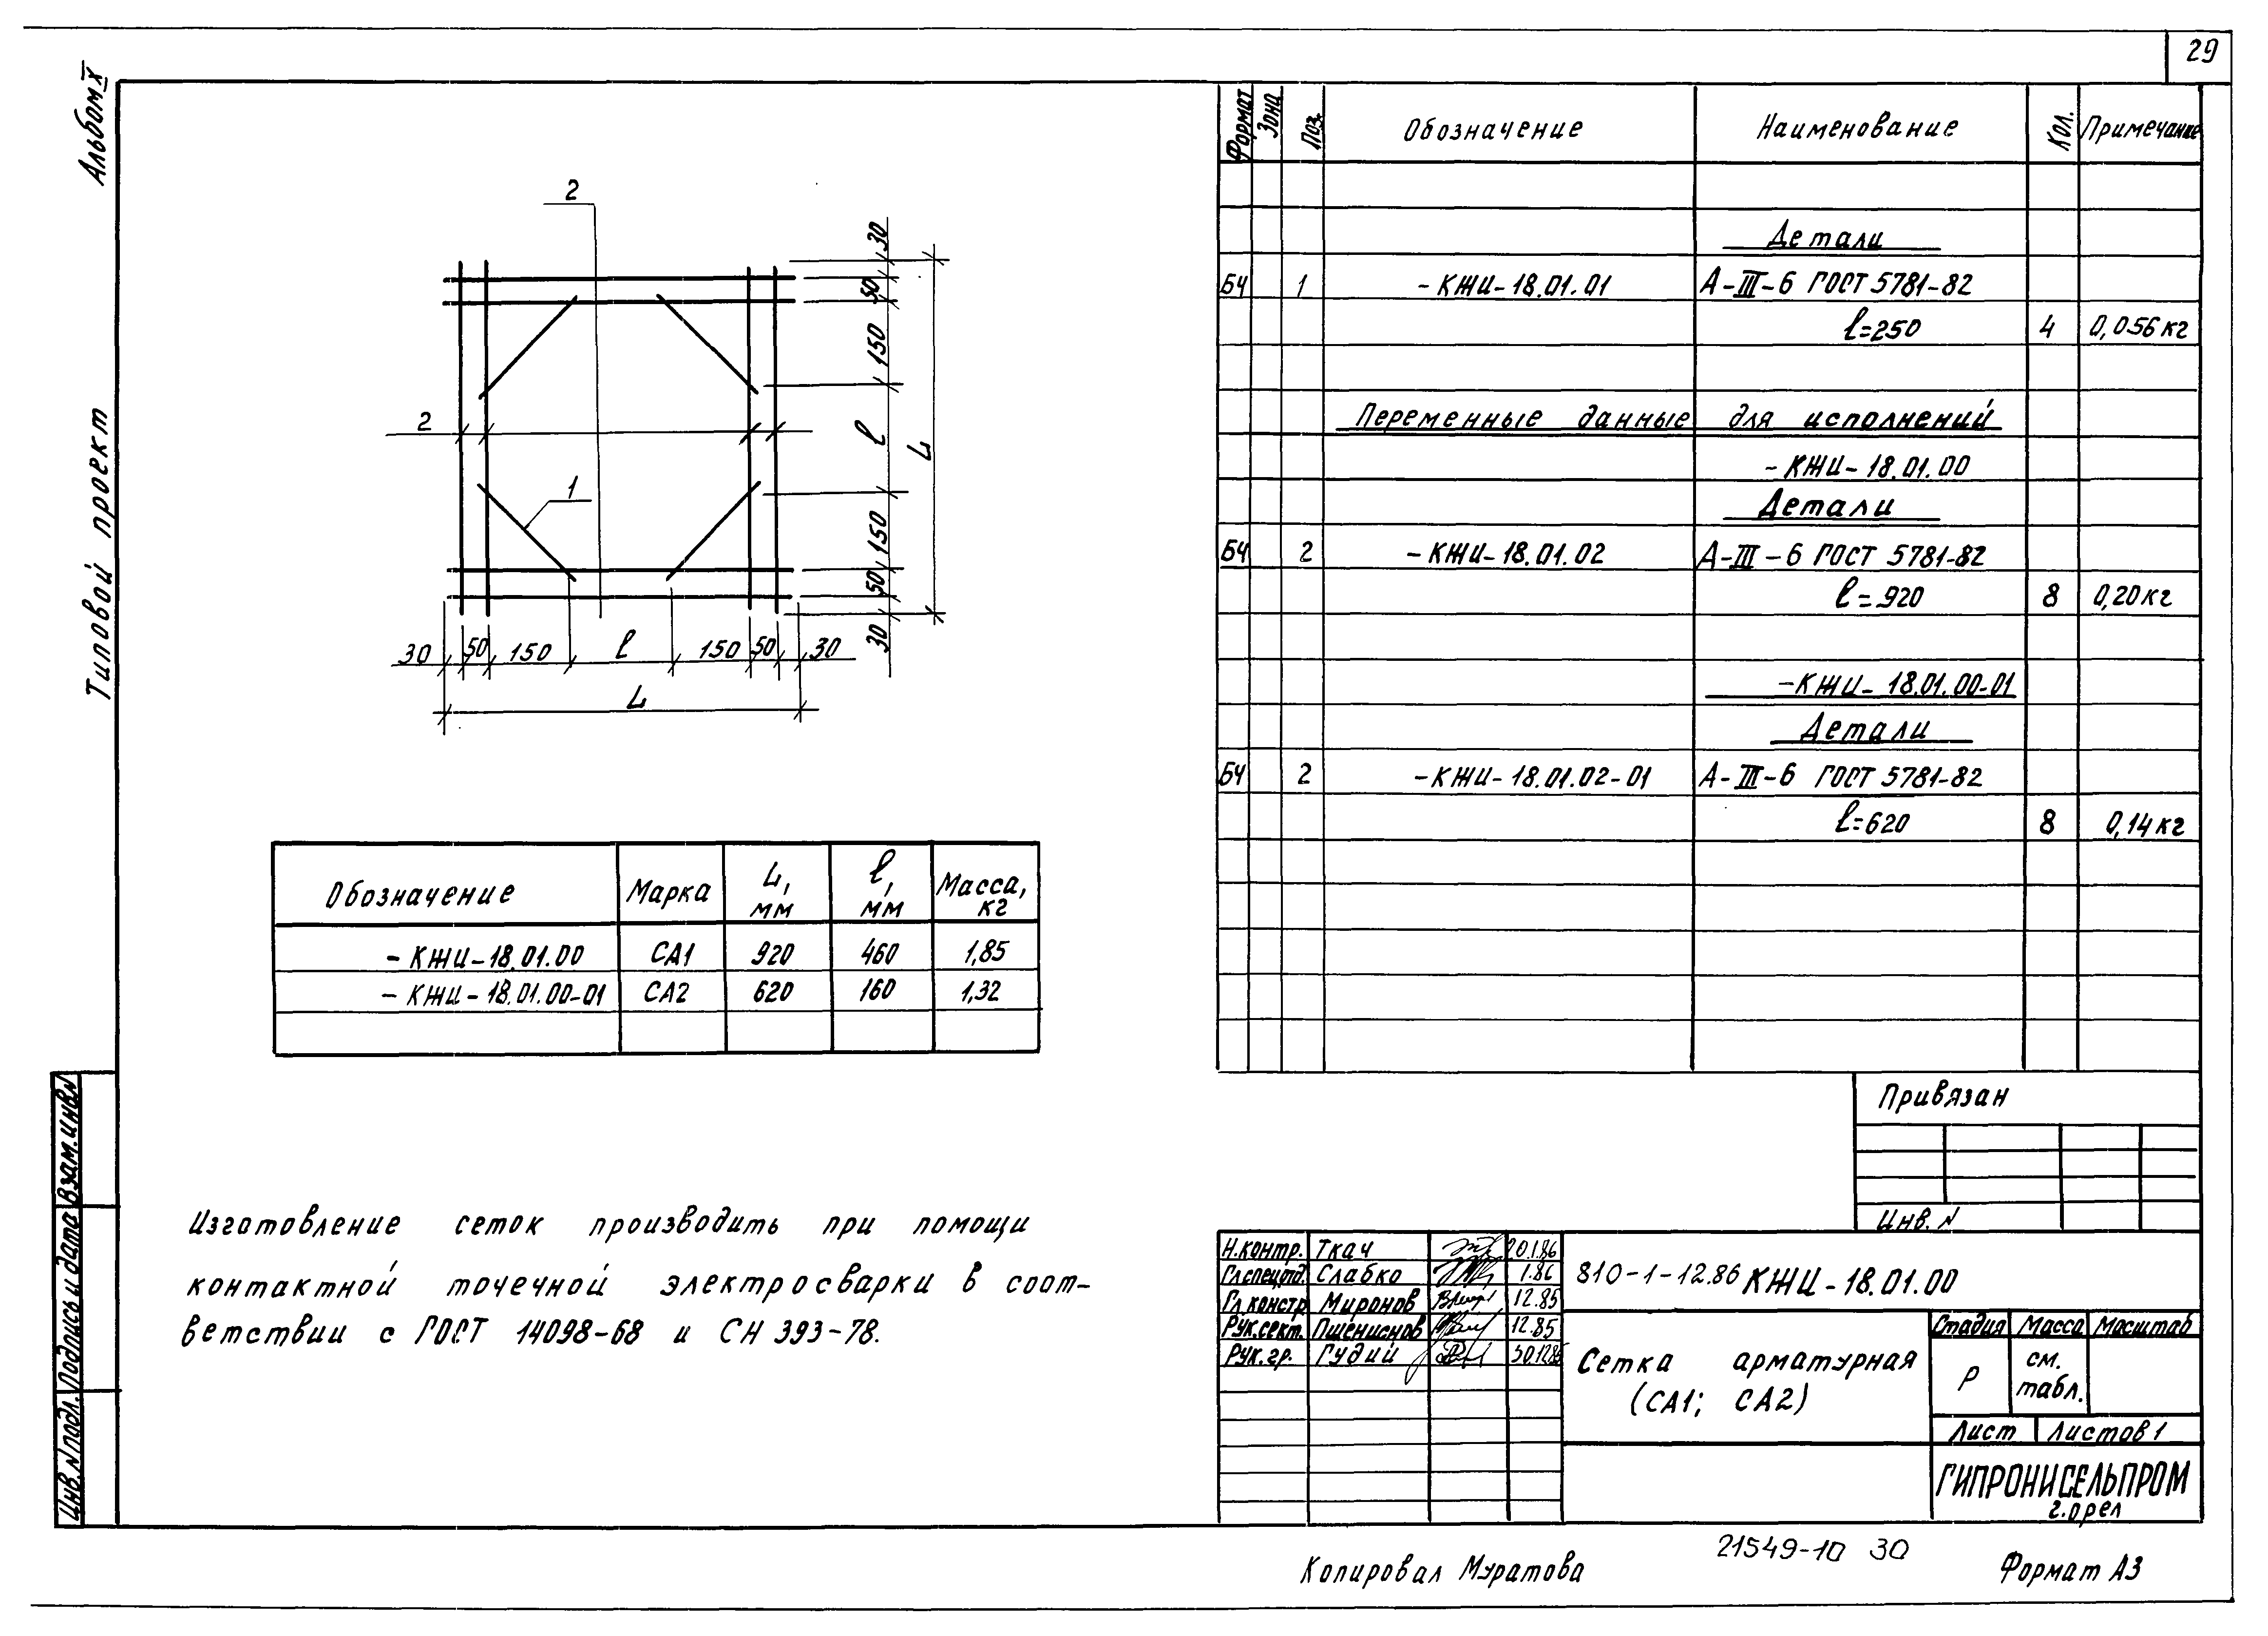 29
Альбом X
Типовой проект
2
2
1
30
50
150
l
150
50
30
L
30 50 150 l 150 50 30
L
Формат Зона Поз. Обозначение Наименование Кол. Примечание
Детали
БЧ 1 -КЖИ-18.01.01 А-III-6 ГОСТ 5781-82
l=250 4 0,056кг
Переменные данные для исполнений
-КЖИ-18.01.00
Детали
БЧ 2 -КЖИ-18.01.02 А-III-6 ГОСТ 5781-82
l=920 8 0,20кг
-КЖИ-18.01.00-01
Детали
БЧ 2 -КЖИ-18.01.02-01 А-III-6 ГОСТ 5781-82
l=620 8 0,14кг
Обозначение Марка L, мм l, мм Масса, кг
-КЖИ-18.01.00 СА1 920 460 1,85
-КЖИ-18.01.00-01 СА2 620 160 1,32
Изготовление сеток производить при помощи
контактной точечной электросварки в соот-
ветствии с ГОСТ 14098-68 и СН 393-78.
Взам.инв.N
Подпись и дата
Инв.N подл.
Привязан
Инв.N
Н.контр. Ткач 20.1.86
Гл.спец.отд. Слабко 1.86
Гл.констр Миронов 12.85
Рук.сект. Пшениснов 12.85
Рук.гр. Гудий 30.12.85
810-1-12.86 КЖИ-18.01.00
Сетка арматурная
(СА1; СА2)
Стадия Масса Масштаб
Р см. табл.
Лист Листов 1
ГИПРОНИСЕЛЬПРОМ
г.орел
21549-10 30
Копировал Муратова
Формат А3